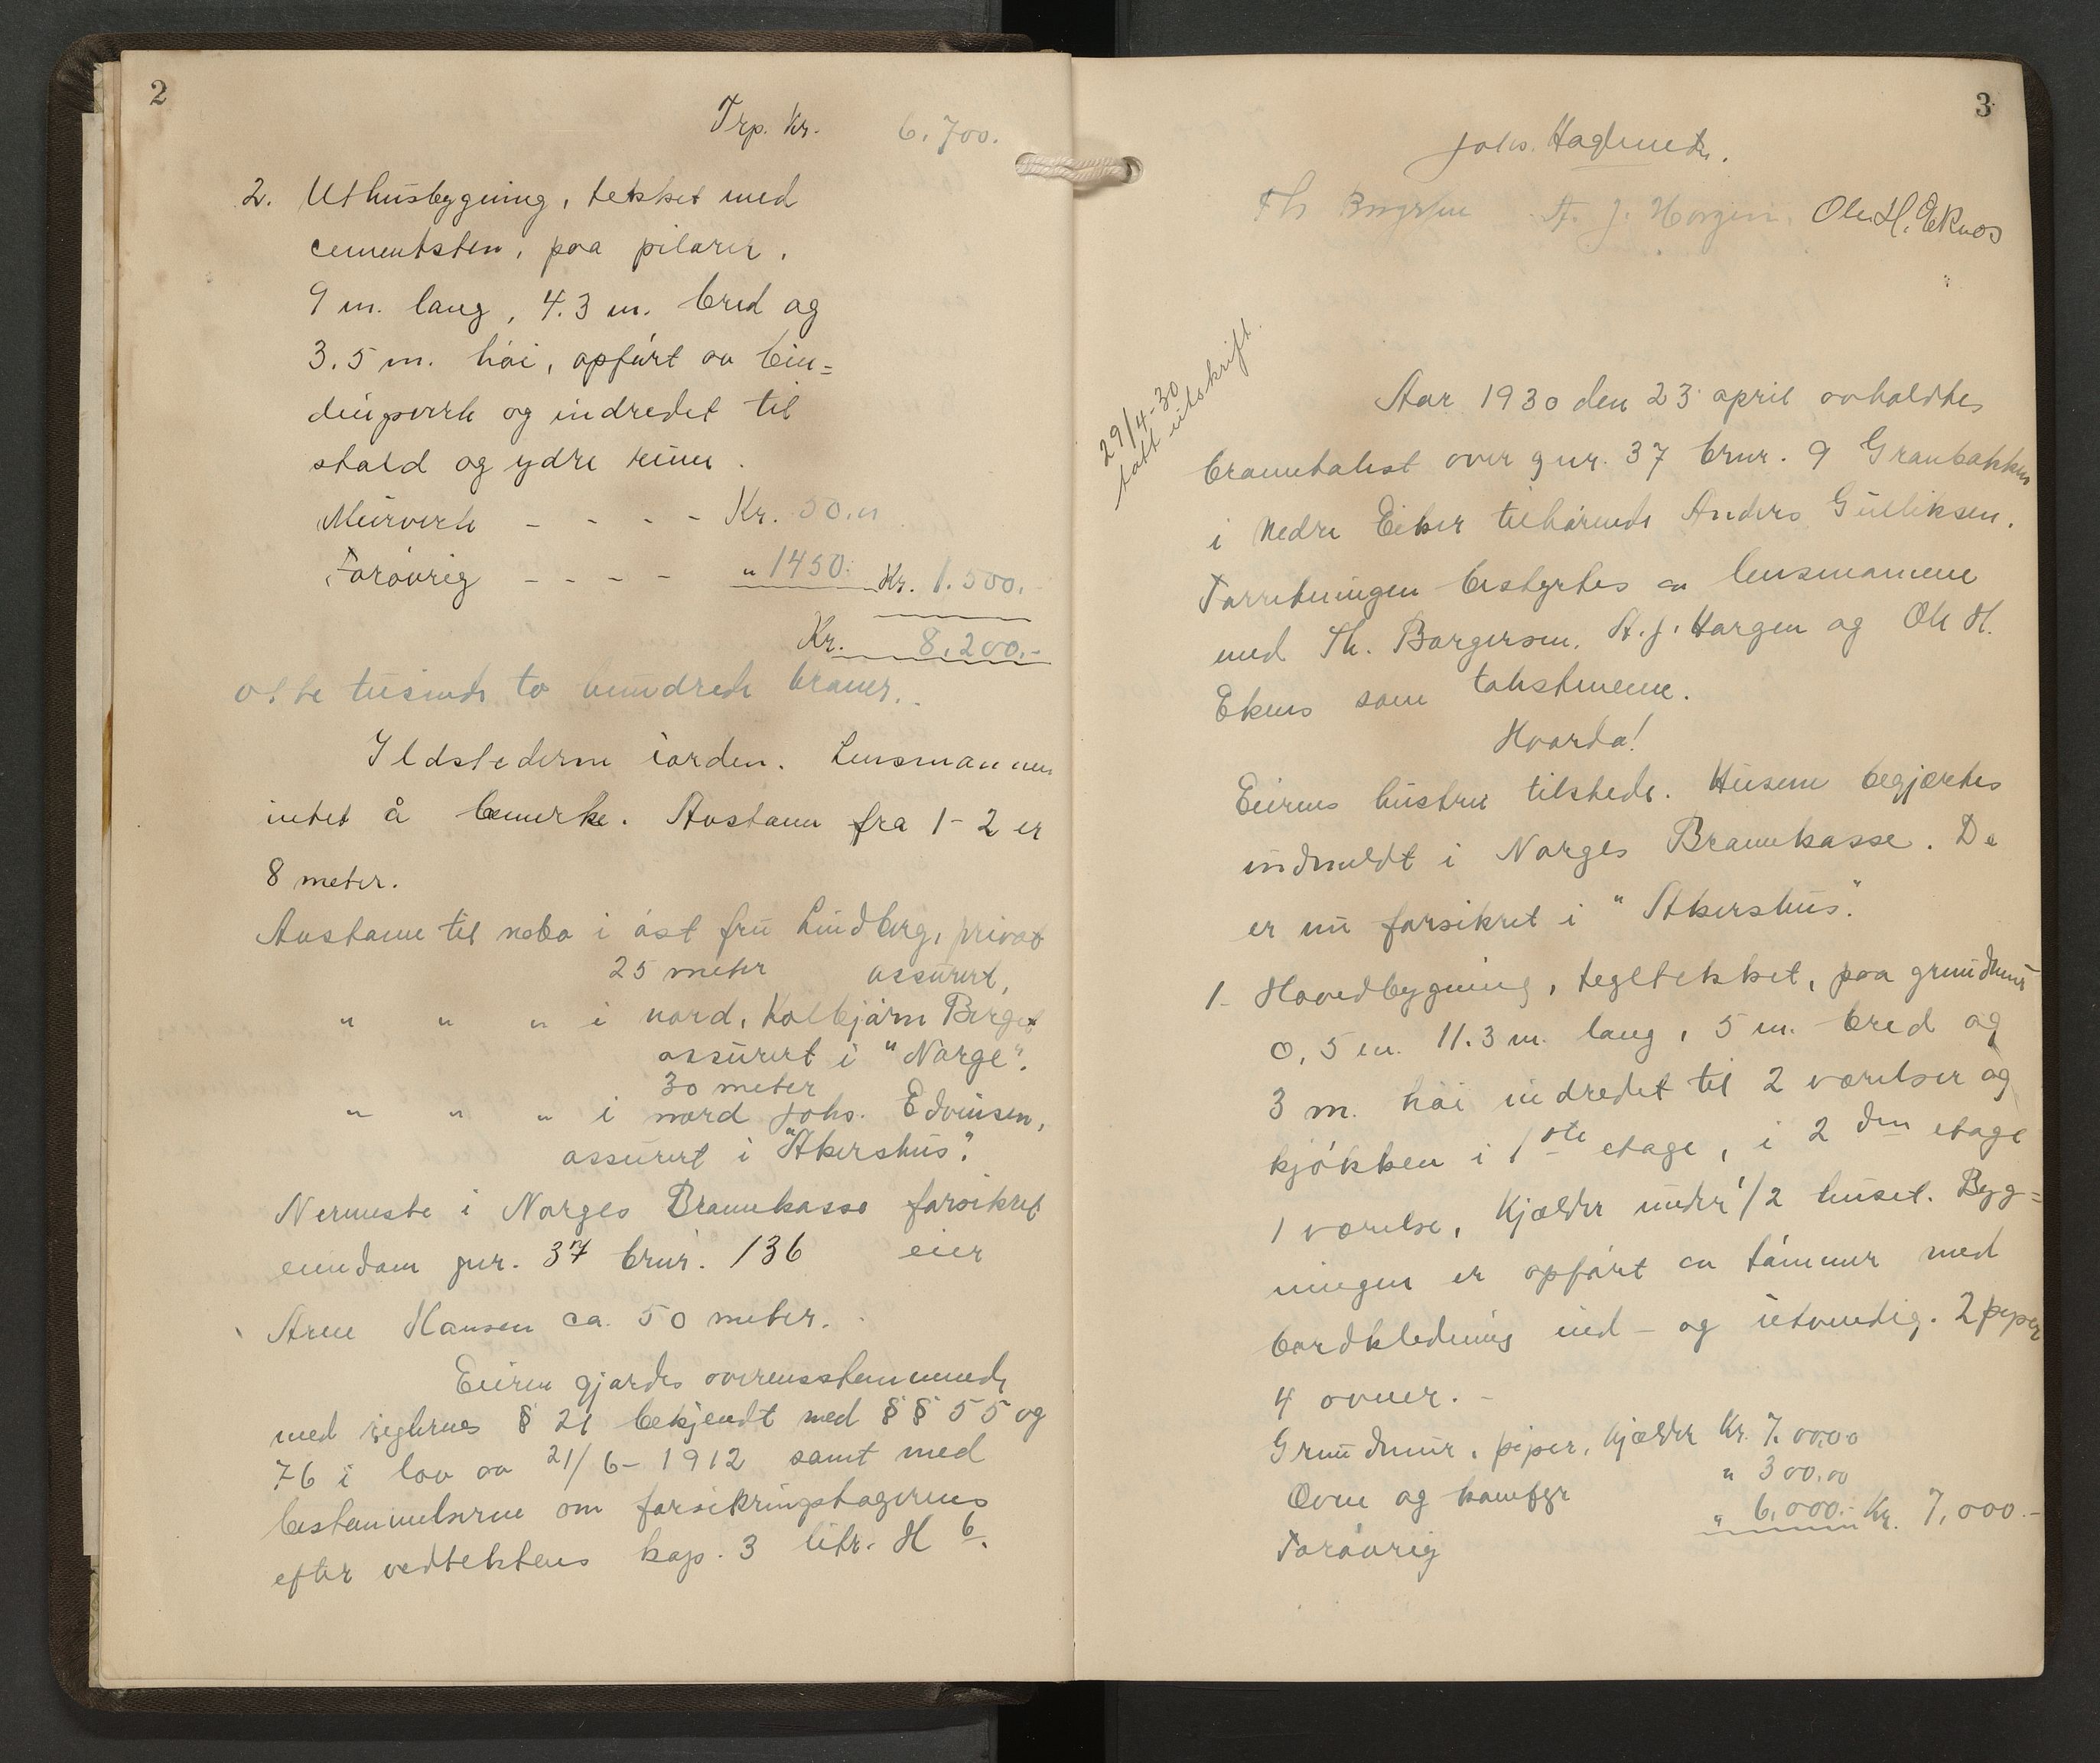 2
Trp. Kr. 6.700.
2. Uthusbygning, tekket med
cementsten, paa pilarer.
9 m. lang, 4.3 m. bred og
3.5 m. høi, opført av bin=
dingsverk og indredet til
stald og ydre rum.
Murverk - - - - Kr. 50.
Forøvrig - - - - " 1450. Kr. 1.500.-
Kr. 8.200.-
otte tusinde to hundrede kroner.
Ildstederne iorden. Lensmannen
intet å bemerke. Avstann fra 1-2 er
8 meter.
Avstann til nabo i øst fru Lindberg, privat
25 meter assurert,
" " " i nord, Kolbjørn Berget
assurert i "Norge".
30 meter
" " " i nord Johs. Edvinsen,
assurert i "Akershus".
Nermeste i Norges Brannkasse forsikret
eiendom gnr. 37 brnr. 136 eier
Arne Hansen ca. 50 meter.
Eieren gjordes overensstemmende
med reglernes § 21 bekjendt med §§ 55 og
76 i lov av 21/6-1912 samt med
bestemmelserne om forsikringstagerens
efter vedtektens kap. 3 litr. H 6.
3
Johs. Haglund.
Th Borgersen A. J. Horgen. Ole H. Eknes
29/4-30
tatt utskrift.
Aar 1930 den 23 april avholdtes
branntakst over gnr. 37 brnr. 9 Granbakken
i Nedre Eiker tilhørende Anders Gulliksen.
Forretningen bestyrtes av lensmannen
med Th. Borgersen, A. J. Horgen og Ole H.
Eknes som takstmenn.
Hvorda!
Eierens hustru tilstede. Husene begjærtes
indmeldt i Norges Brannkasse. De
er nu forsikret i "Akershus".
1. Hovedbygning, tegltekket, paa grundmur
0,5 m. 11.3 m. lang, 5 m. bred og
3 m. høi indredet til 2 værelser og
kjøkken i 1ste etage, i 2 den etage
1 værelse, Kjælder under 1/2 huset. Byg=
ningen er opført av tømmer med
bordkledning ind- og utvendig. 2 piper
4 ovner.-
Grundmur, piper, kjælder Kr. 700.00
Ovne og komfyr " 300.00
Forøvrig " 6,000.- Kr. 7,000.-